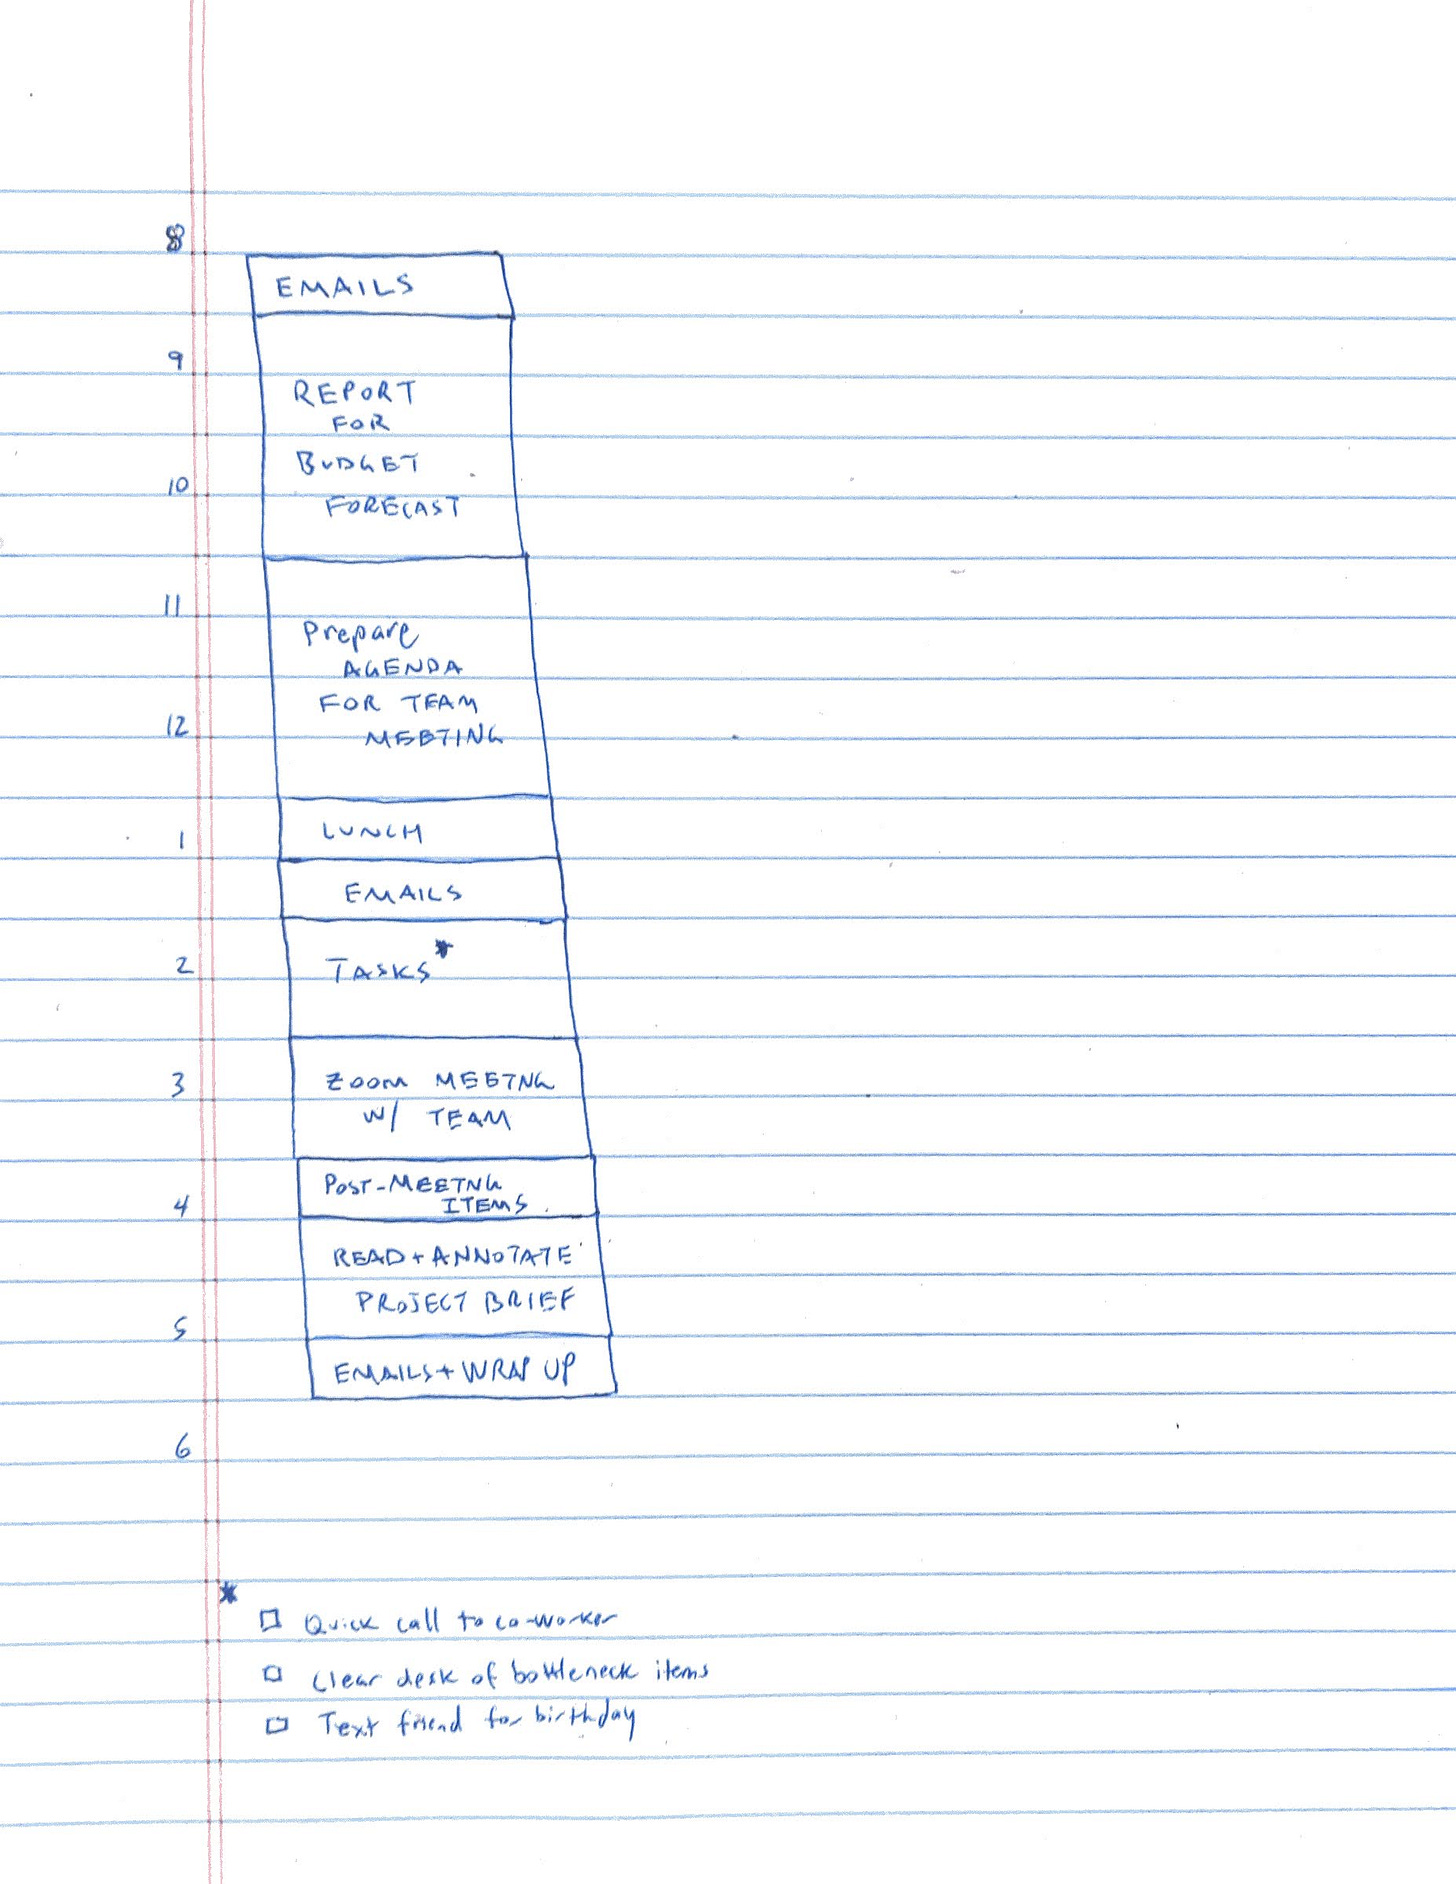 8
EMAILS
9
REPORT
FOR
BUDGET
10
FORECAST
11
Prepare
AGENDA
FOR TEAM
12
MEETING
LUNCH
1
EMAILS
2
TASKS*
3
ZOOM MEETNG
W/ TEAM
POST-MEETNG
4
ITEMS
READ + ANNOTATE
PROJECT BRIEF
5
EMAILS + WRAP UP
6
*
□ Quick call to co-worker
□ Clear desk of bottleneck items
□ Text friend for birthday